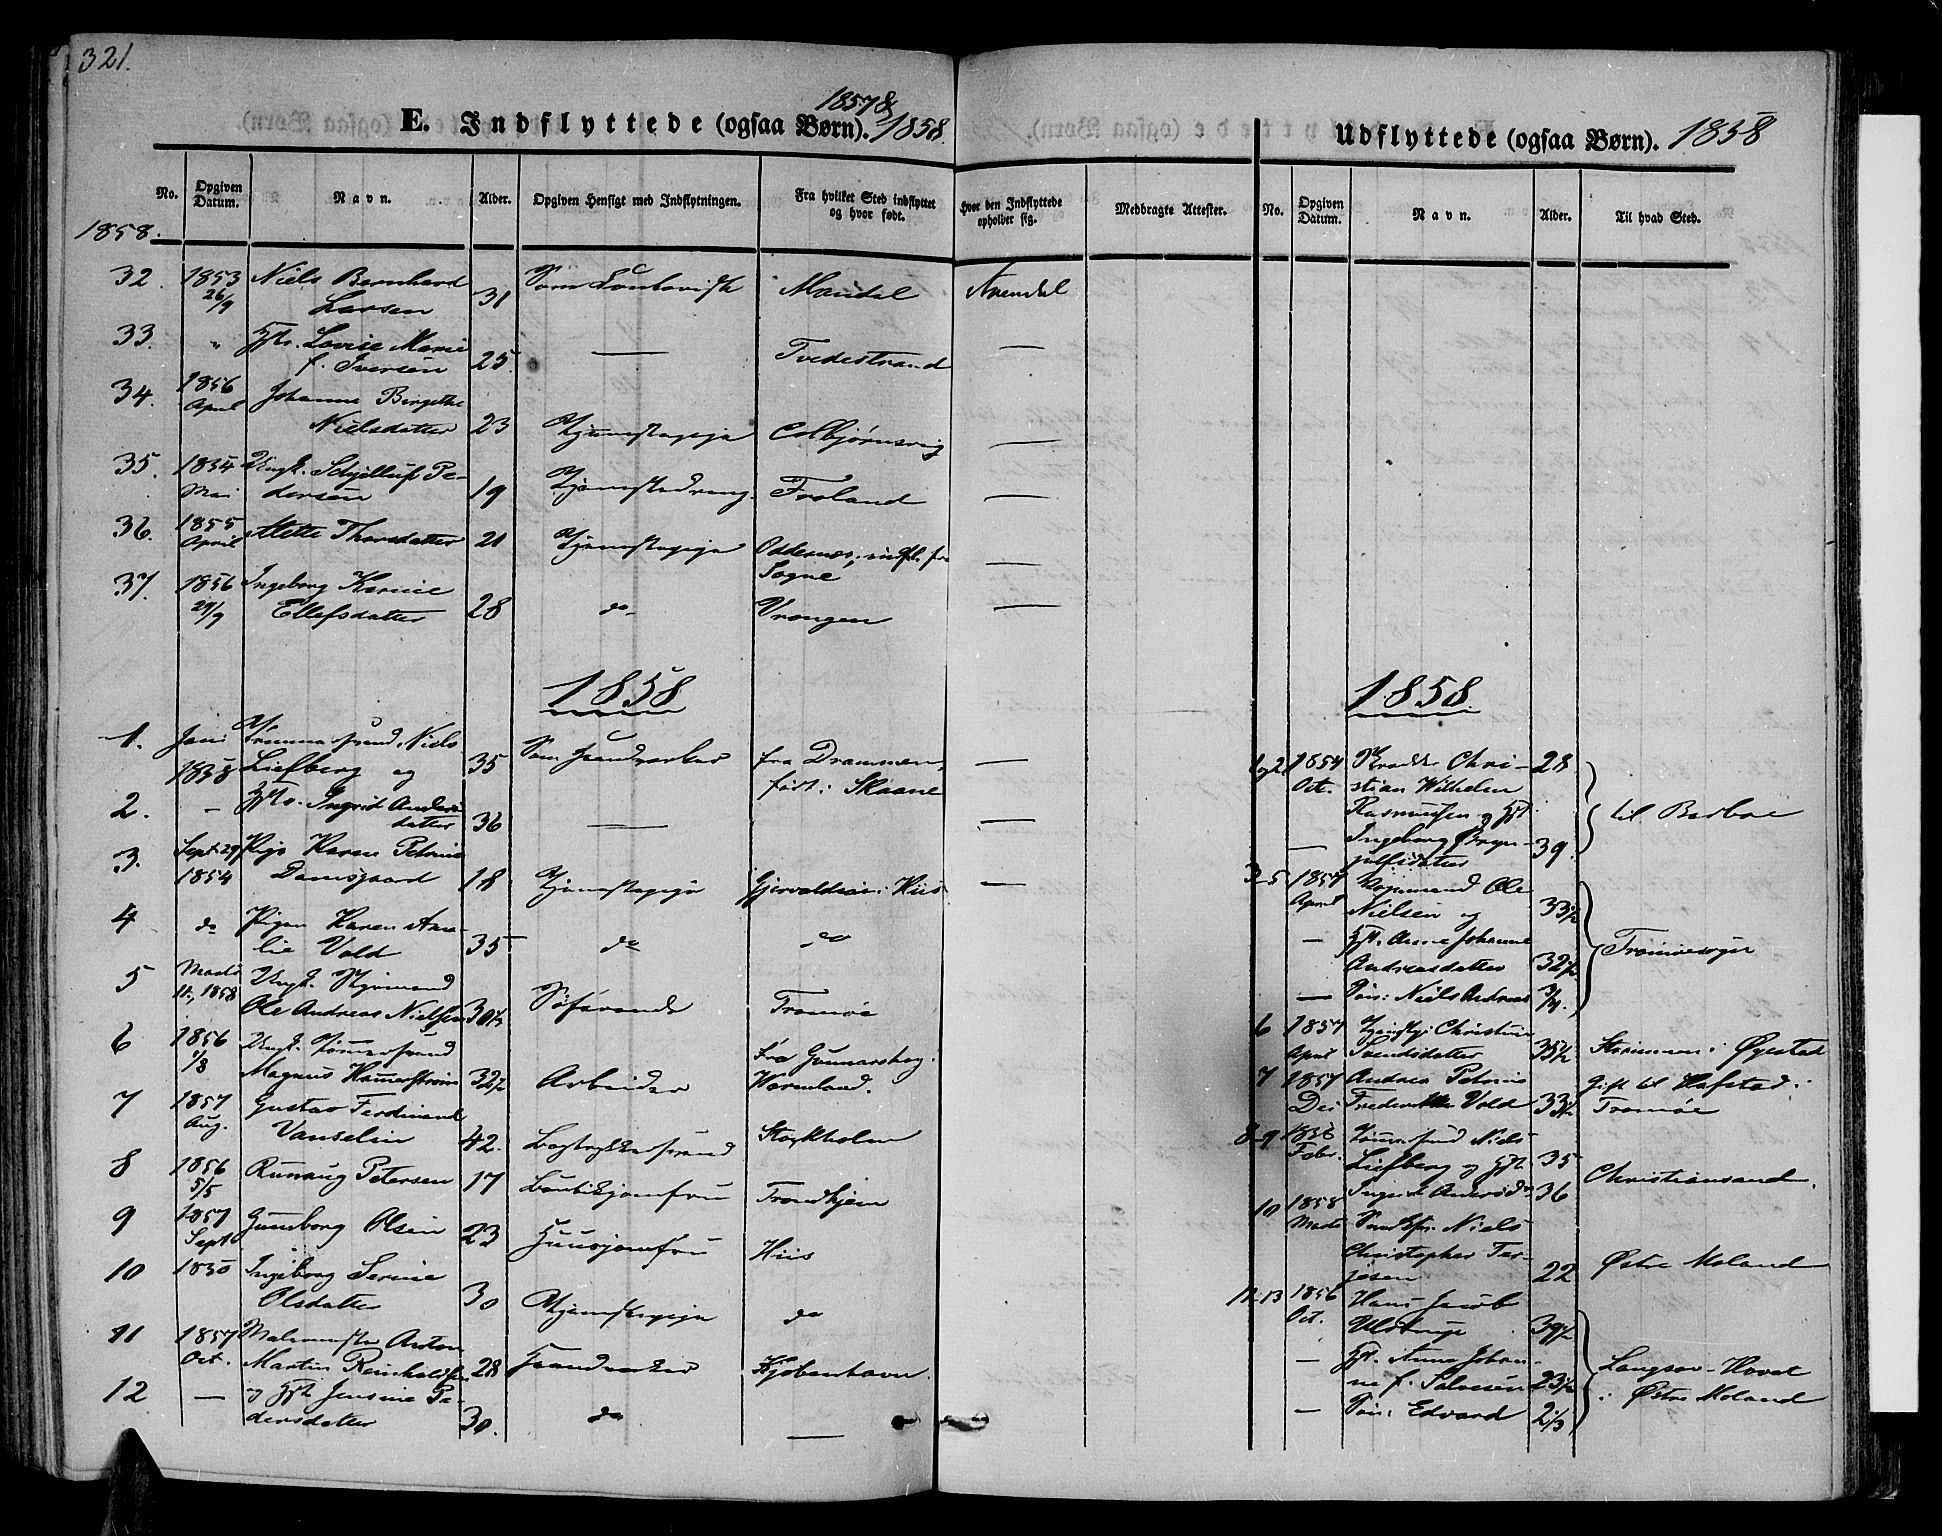 321.
E. Indflyttede (ogsaa Børn). 1857 & 1858.
No.
Opgiven Datum.
Navn.
Alder.
Opgiven Hensigt med Indflytningen.
Fra hvilket Sted indflyttet og hvor født.
Hvor den Indflyttede opholder sig.
Medbragte Attester.
1858.
32. 1853 Niels Bernhard Mandal Arendal
26/9 Larsen 31
33. " Hst. Lovise Marie — Tvedestrand —
f. Iversen 25
34. 1856 Johanne Birgithe
April Nielsdatter 23 Tjenestepige Colbjørnsvig —
35. 1854 Ungk. Pe-
Mai dersen 19 Tjenestedreng Froland —
36. 1855 Thorsdatter 21 Tjenestepige Oddernæs, indfl. fra —
April Sogne
37. 1856 Ingeborg Karine
29/9 Ellefsdatter 28 do Vrengen —
1858
1. Jan: Tømmersvend Niels Som Haandværker fra Drammen, —
1858 Liefberg og 35 født i Skaane
2. — Hst. Ingrid Anders- — —
datter 36
3. Sept. 29 Pige Karen Petrine
1854 Damsgaard 18 Tjenestepige i Hiis —
4 do Pigen Karen Ama-
lie Vold 35 do do
5 Marts Ungk. Styrmand
11, 1858 Ole Andreas Nielsen 30 Søfarende Tromøe
6 1856 Ungk. Tømmersvend Fra Gunnarskog
1/8 Magnus 32 1/2 Arbeider Wermland.
7 1857 Gustav Ferdinand
Aug. Vanselin 42. Bogtrykkersvend Stockholm
8 1856 Petersen 17 Boutikjomfru Trondhjem
5/5
9 1857 Gunborg Olsen 23 Huusjomfru Hiis
Sept
10 1850 Ingeborg Serine
Olsdatter 30 Tjenestepige do
11 1857 Malermester Anton
Oct. Martin Reinholdsen 28 Haandværker Kjøbenhavn.
12 — og Hst. Jensine Pe-
dersdatter 30. do —
Udflyttede (ogsaa Børn). 1858
No.
Opgiven Datum.
Navn.
Alder.
Til hvad Sted.
1858.
1 og 2. 1854 Chri- 28
Oct. stian Wilhelm
Rasmussen og Hst. til Barboe
— Ingeborg Bryn-
julfsdatter 39.
3-5 1857 Ole
April Nielsen og 33 1/2
— Hst. Anne Johanne Tromøesogn
Andreasdatter 32 1/2
— Søn: Niels Andreas 3/4
6 1857 Tjenstp. Christine
April Svendsdatter 35 1/2 Strømmen i Øiestad
7 1857 Andrea Petrine Gift til Hafstad i
Dec Frederikke Vold 33 1/2 Tromøe
8-9 1858 Tømmersvend Niels
Febr. Liefberg og Hst. 35
Ingrid Andersd. 36 Christiansand.
10 1858
Marts Niels
Christopher Ter-
jesen 22 Østre Moland
11-13 1856 Hans Jacob
Oct. Ulstrup 39 1/2
— Hst. Anne Johan-
ne f. Salvesen 23 1/2 i Østre Moland
— Søn: Edvard 2 1/3